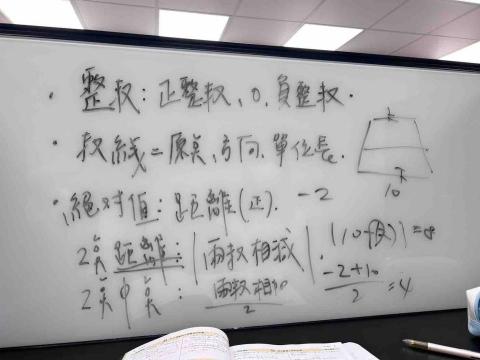 · 整数: 正整数、0、负整数.
· 数線 = 原点、方向、單位長.
· 絕对值: 距離(正).
-2
10
2点距離: |兩数相減|
|10-(-2)| = 8
2点中点: 兩数相加/2
-2+10/2 = 4